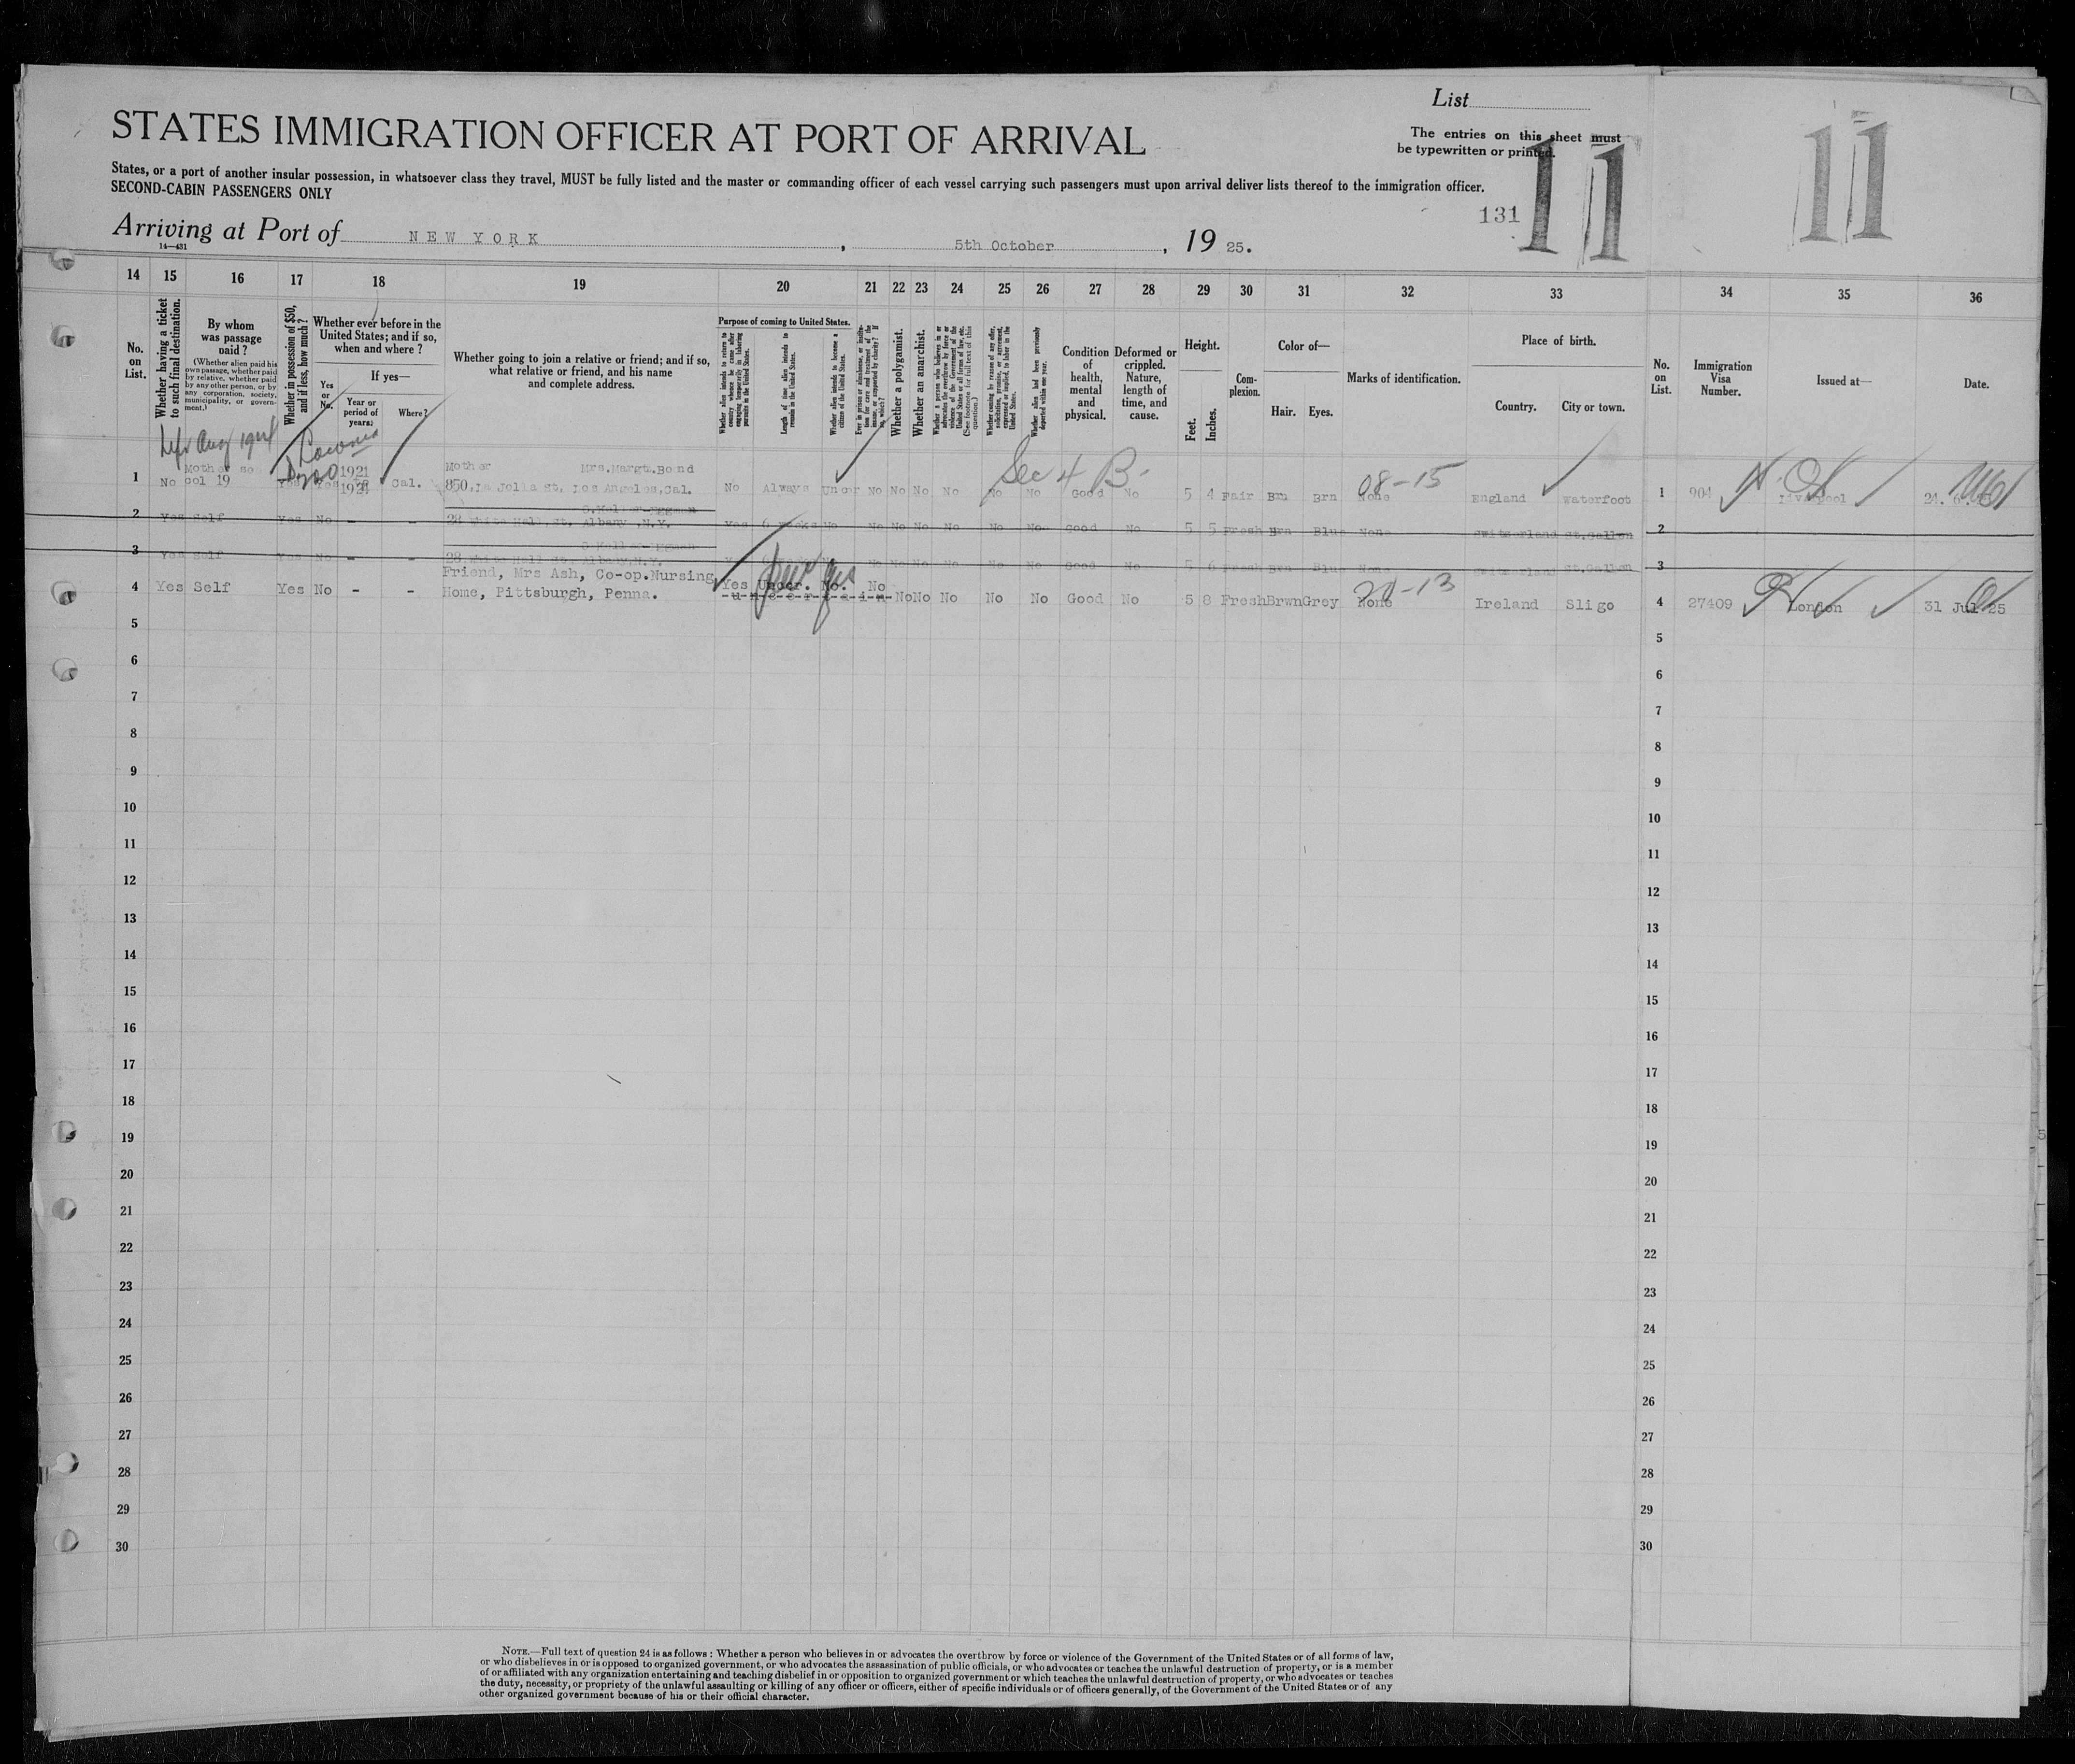 List
STATES IMMIGRATION OFFICER AT PORT OF ARRIVAL
The entries on this sheet must
be typewritten or printed.
11
11
States, or a port of another insular possession, in whatsoever class they travel, MUST be fully listed and the master or commanding officer of each vessel carrying such passengers must upon arrival deliver lists thereof to the immigration officer.
SECOND-CABIN PASSENGERS ONLY
131
Arriving at Port of NEW YORK, 5th October, 19 25.
14—431
14 15 16 17 18 19 20 21 22 23 24 25 26 27 28 29 30 31 32 33 34 35 36
No. on List.
Whether having a ticket to such final destination.
By whom was passage paid?
(Whether alien paid his own passage, whether paid by relative, whether paid by any other person, or by any corporation, society, municipality, or government.)
Whether in possession of $50, and if less, how much?
Whether ever before in the United States; and if so, when and where?
If yes—
Yes or No.
Year or period of years.
Where?
Whether going to join a relative or friend; and if so, what relative or friend, and his name and complete address.
Purpose of coming to United States.
Whether alien intends to return to country whence he came after engaging temporarily in laboring pursuits in the United States.
Length of time alien intends to remain in the United States.
Whether alien intends to become a citizen of the United States.
Whether a polygamist.
Whether an anarchist.
Whether coming by reason of any offer, solicitation, promise, or agreement, expressed or implied, to labor in the United States.
Whether alien had been previously deported within one year.
Condition of health, mental and physical.
Deformed or crippled. Nature, length of time, and cause.
Height.
Feet.
Inches.
Complexion.
Color of—
Hair.
Eyes.
Marks of identification.
Place of birth.
Country.
City or town.
No. on List.
Immigration Visa Number.
Issued at—
Date.
Aug 1924
$200
Sec 4 B.
08-15
1 No Mother so col 19 Yes Yes 1921 to 1924 Cal. Mother Mrs.Margt.Bond 850,La Jolla St, Los Angeles,Cal. No Always Uncer No No No No No No Good No 5 4 Fair Brn Brn None England Waterfoot 1 904 Liverpool
2 Yes Self Yes No - - 28 White Hall St, Albany ,N.Y. Yes No No No No No No No Good No 5 5 Fresh Brn Blue None Switzerland St.Gallen 2
3 Yes Self Yes No - - 28 White Hall St. Albany,N.Y. No No No No No No Good No 5 6 Fresh Brn Blue None Switzerland St.Gallen 3
20-13
4 Yes Self Yes No - - Friend, Mrs Ash, Co-op.Nursing Home, Pittsburgh, Penna. Yes Uncer. No. No No No No No No Good No 5 8 Fresh Brwn Grey None Ireland Sligo 4 27409 London 31 Jul 25
5 5
6 6
7 7
8 8
9 9
10 10
11 11
12 12
13 13
14 14
15 15
16 16
17 17
18 18
19 19
20 20
21 21
22 22
23 23
24 24
25 25
26 26
27 27
28 28
29 29
30 30
NOTE.—Full text of question 24 is as follows: Whether a person who believes in or advocates the overthrow by force or violence of the Government of the United States or of all forms of law,
or who disbelieves in or is opposed to organized government, or who advocates the assassination of public officials, or who advocates or teaches the unlawful destruction of property, or is a member
of or affiliated with any organization entertaining and teaching disbelief in or opposition to organized government or which teaches the unlawful destruction of property, or who advocates or teaches
the duty, necessity, or propriety of the unlawful assaulting or killing of any officer or officers, either of specific individuals or of officers generally, of the Government of the United States or of any
other organized government because of his or their official character.